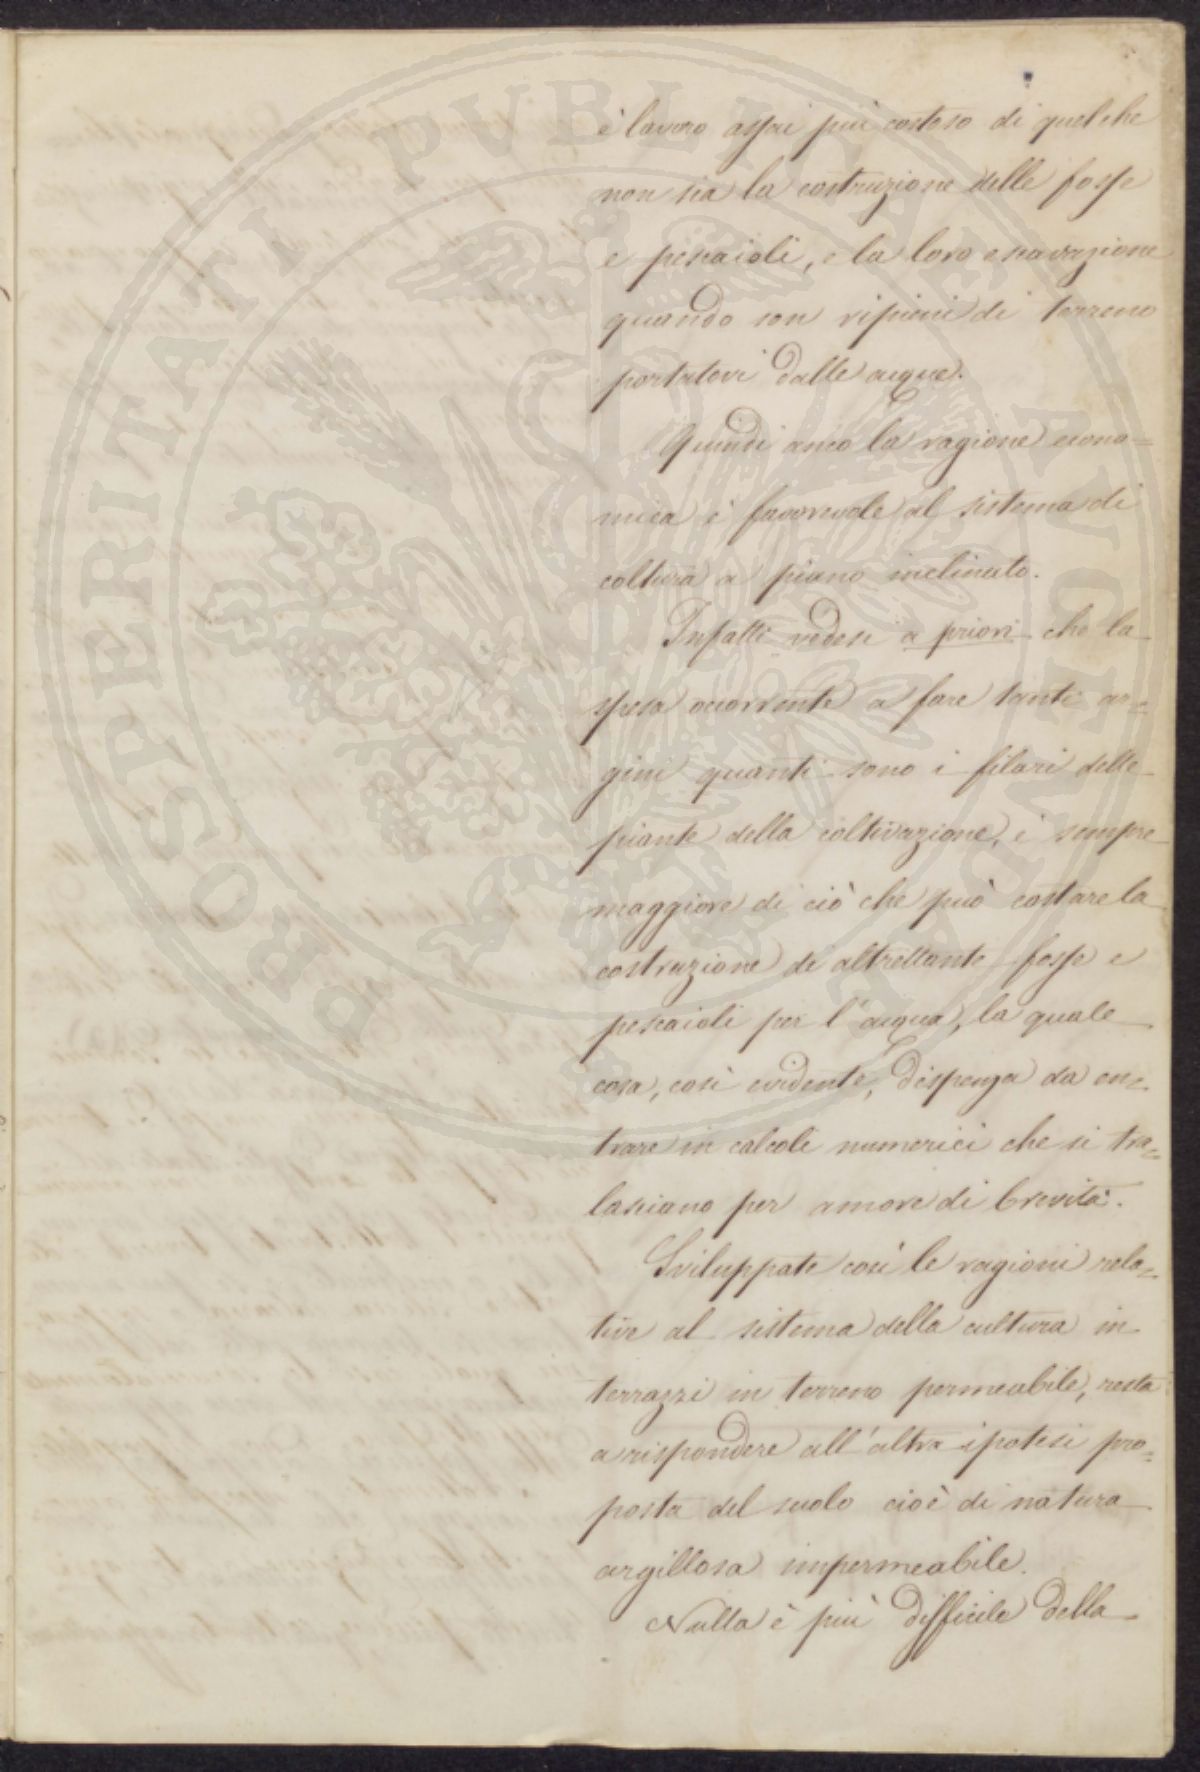 è lavoro assai più costoso di quel che
non sia la costruzione delle fosse
e pescaioli, e la loro escavazione
quando son ripieni di terreno
portatovi dalle acque.
Quindi anco la ragione econo=
mica è favorevole al sistema di
coltura a piano inclinato.
Infatti vedesi a priori che la
spesa occorrente a fare tanti ar=
gini quanti sono i filari delle
piante della coltivazione, è sempre
maggiore di ciò che può costare la
costruzione di altrettante fosse e
pescaioli per l'acqua, la quale
cosa, così evidente, dispenza da en=
trare in calcoli numerici che si tra=
lasciano per amore di brevità.
Sviluppate così le ragioni rela=
tive al sistema della cultura in
terrazzi in terreno permeabile, resta
a rispondere all'altra ipotesi pro=
posta del suolo cioè di natura
argillosa impermeabile.
Nulla è più difficile della
PROSPERITATI PUBLICAE AUGENDAE